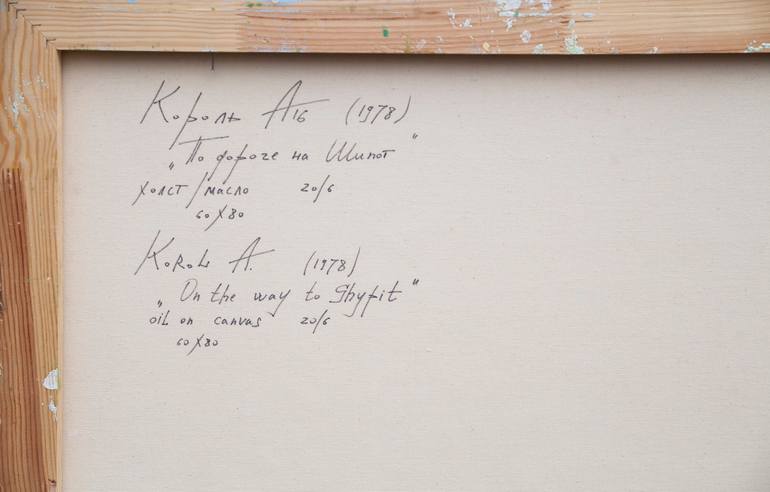 Король А. (1978)
„По дороге на Шипот"
холст/масло 2016
60x80
Koroль A. (1978)
„On the way to Shypit"
oil on canvas 2016
60x80